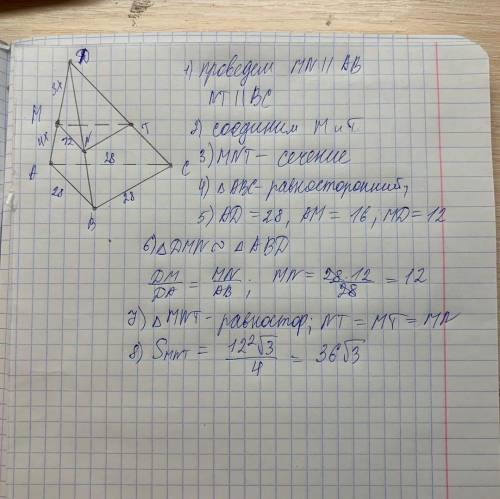 D
3x
M
4x
12
N
T
28
A
C
28
28
B
1) проведем MN || AB
NT || BC
2) соединим M и T
3) MNT - сечение
4) △ABC - равносторонний;
5) AD = 28, AM = 16, MD = 12
6) △DMN ∾ △ABD
DM/DA = MN/AB; MN = 28·12/28 = 12
7) △MNT - равностор; NT = MT = MN
8) S_MNT = 12²√3/4 = 36√3